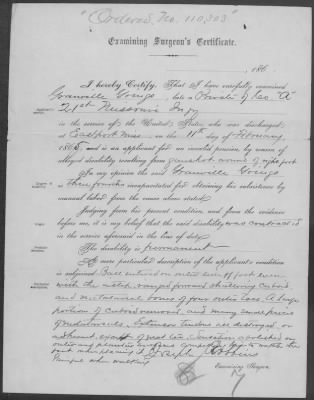 "Orders No. 110,303"
Examining Surgeon's Certificate.
186
I hereby Certify, That I have carefully examined
Granville late a Private of Co. "A"
21st Missouri Infy
in the service of the United States, who was discharged
at Eastport Miss. on the 11th day of February
1865, and is an applicant for an invalid pension, by reason of
alleged disability resulting from gunshot wound of right foot
In my opinion the said Granville
is three fourths incapacitated for obtaining his subsistence by
manual labor from the cause above stated.
Judging from his present condition, and from the evidence
before me, it is my belief that the said disability was contracted
in the service aforesaid in the line of duty.
The disability is permanent
A more particular description of the applicant's condition
is subjoined: Ball entered on outer side of foot even
with the instep, ranged forward shattering cuboid
and metatarsal bones of four outer toes. A large
portion of cuboid removed, and many small pieces
of metatarsals. Extensor tendons are destroyed or
adherent, except of great toe. Sensation abolished on
outer and plantar
foot when placing it
when walking
Joseph Robbins
Examining Surgeon.